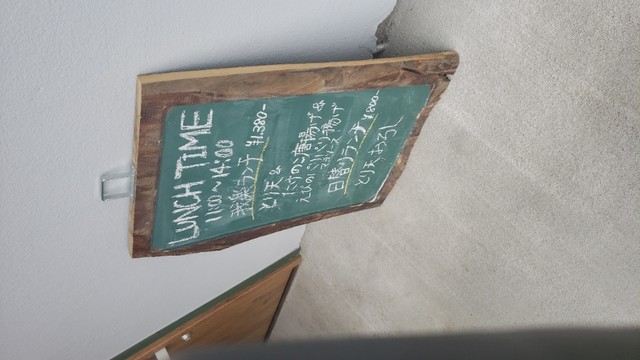 LUNCH TIME
11:00～14:00
我楽ランチ ¥1,380-
とり天 &
たけのこ唐揚げ &
えびのパリパリ揚げ
日替りランチ ¥800-
とり天おろし